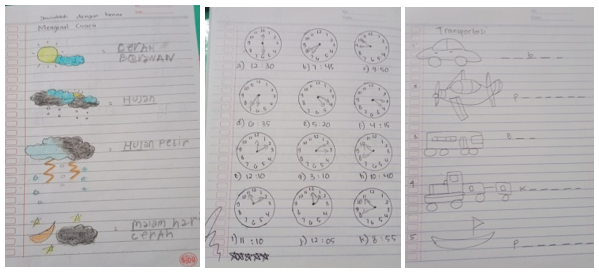 Mengenal Cuaca
= CERAH
BERAWAN
= HUJAN
= HUJAN PETIR
= malam hari
CERAH
a) 12:30
b) 7:45
c) 9:50
d) 6:35
e) 5:20
f) 4:15
g) 3:10
h) 10:40
i) 11:10
j) 12:05
k) 8:55
Transportasi
1
b
2
3
4
K
5
P